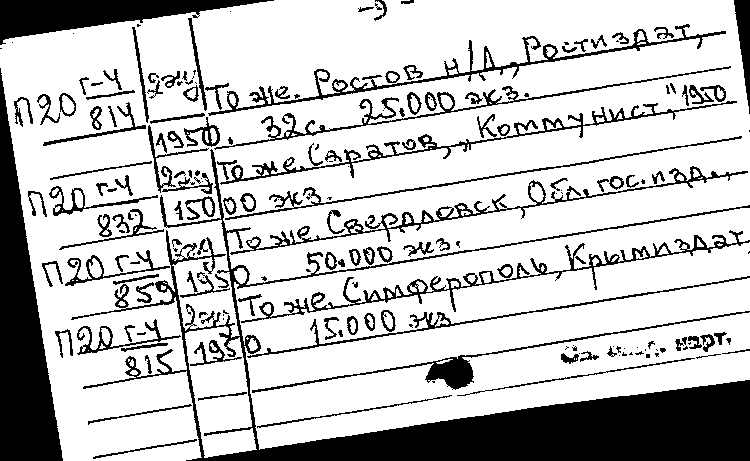 -9-
П20 Г-4 2экз То же. Ростов н/Д., Ростиздат,
814 1950. 32с. 25.000 экз.
П20 Г-4 2экз То же. Саратов, „Коммунист," 1950
832 15000 экз.
П20 Г-4 2экз То же. Свердловск, Обл. гос. изд.,
859 1950. 50.000 экз.
П20 Г-4 2экз То же. Симферополь, Крымиздат,
815 1950. 15.000 экз
См. след. карт.